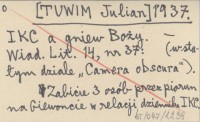 [TUWIM Julian] 1937.
IKC a gniew Boży.
Wiad. Lit. 14, nr 37. (w sta-
łym dziale „Camera obscura").
Zabicie 3 osób przez piorun
na Giewoncie w relacji dziennika IKC.